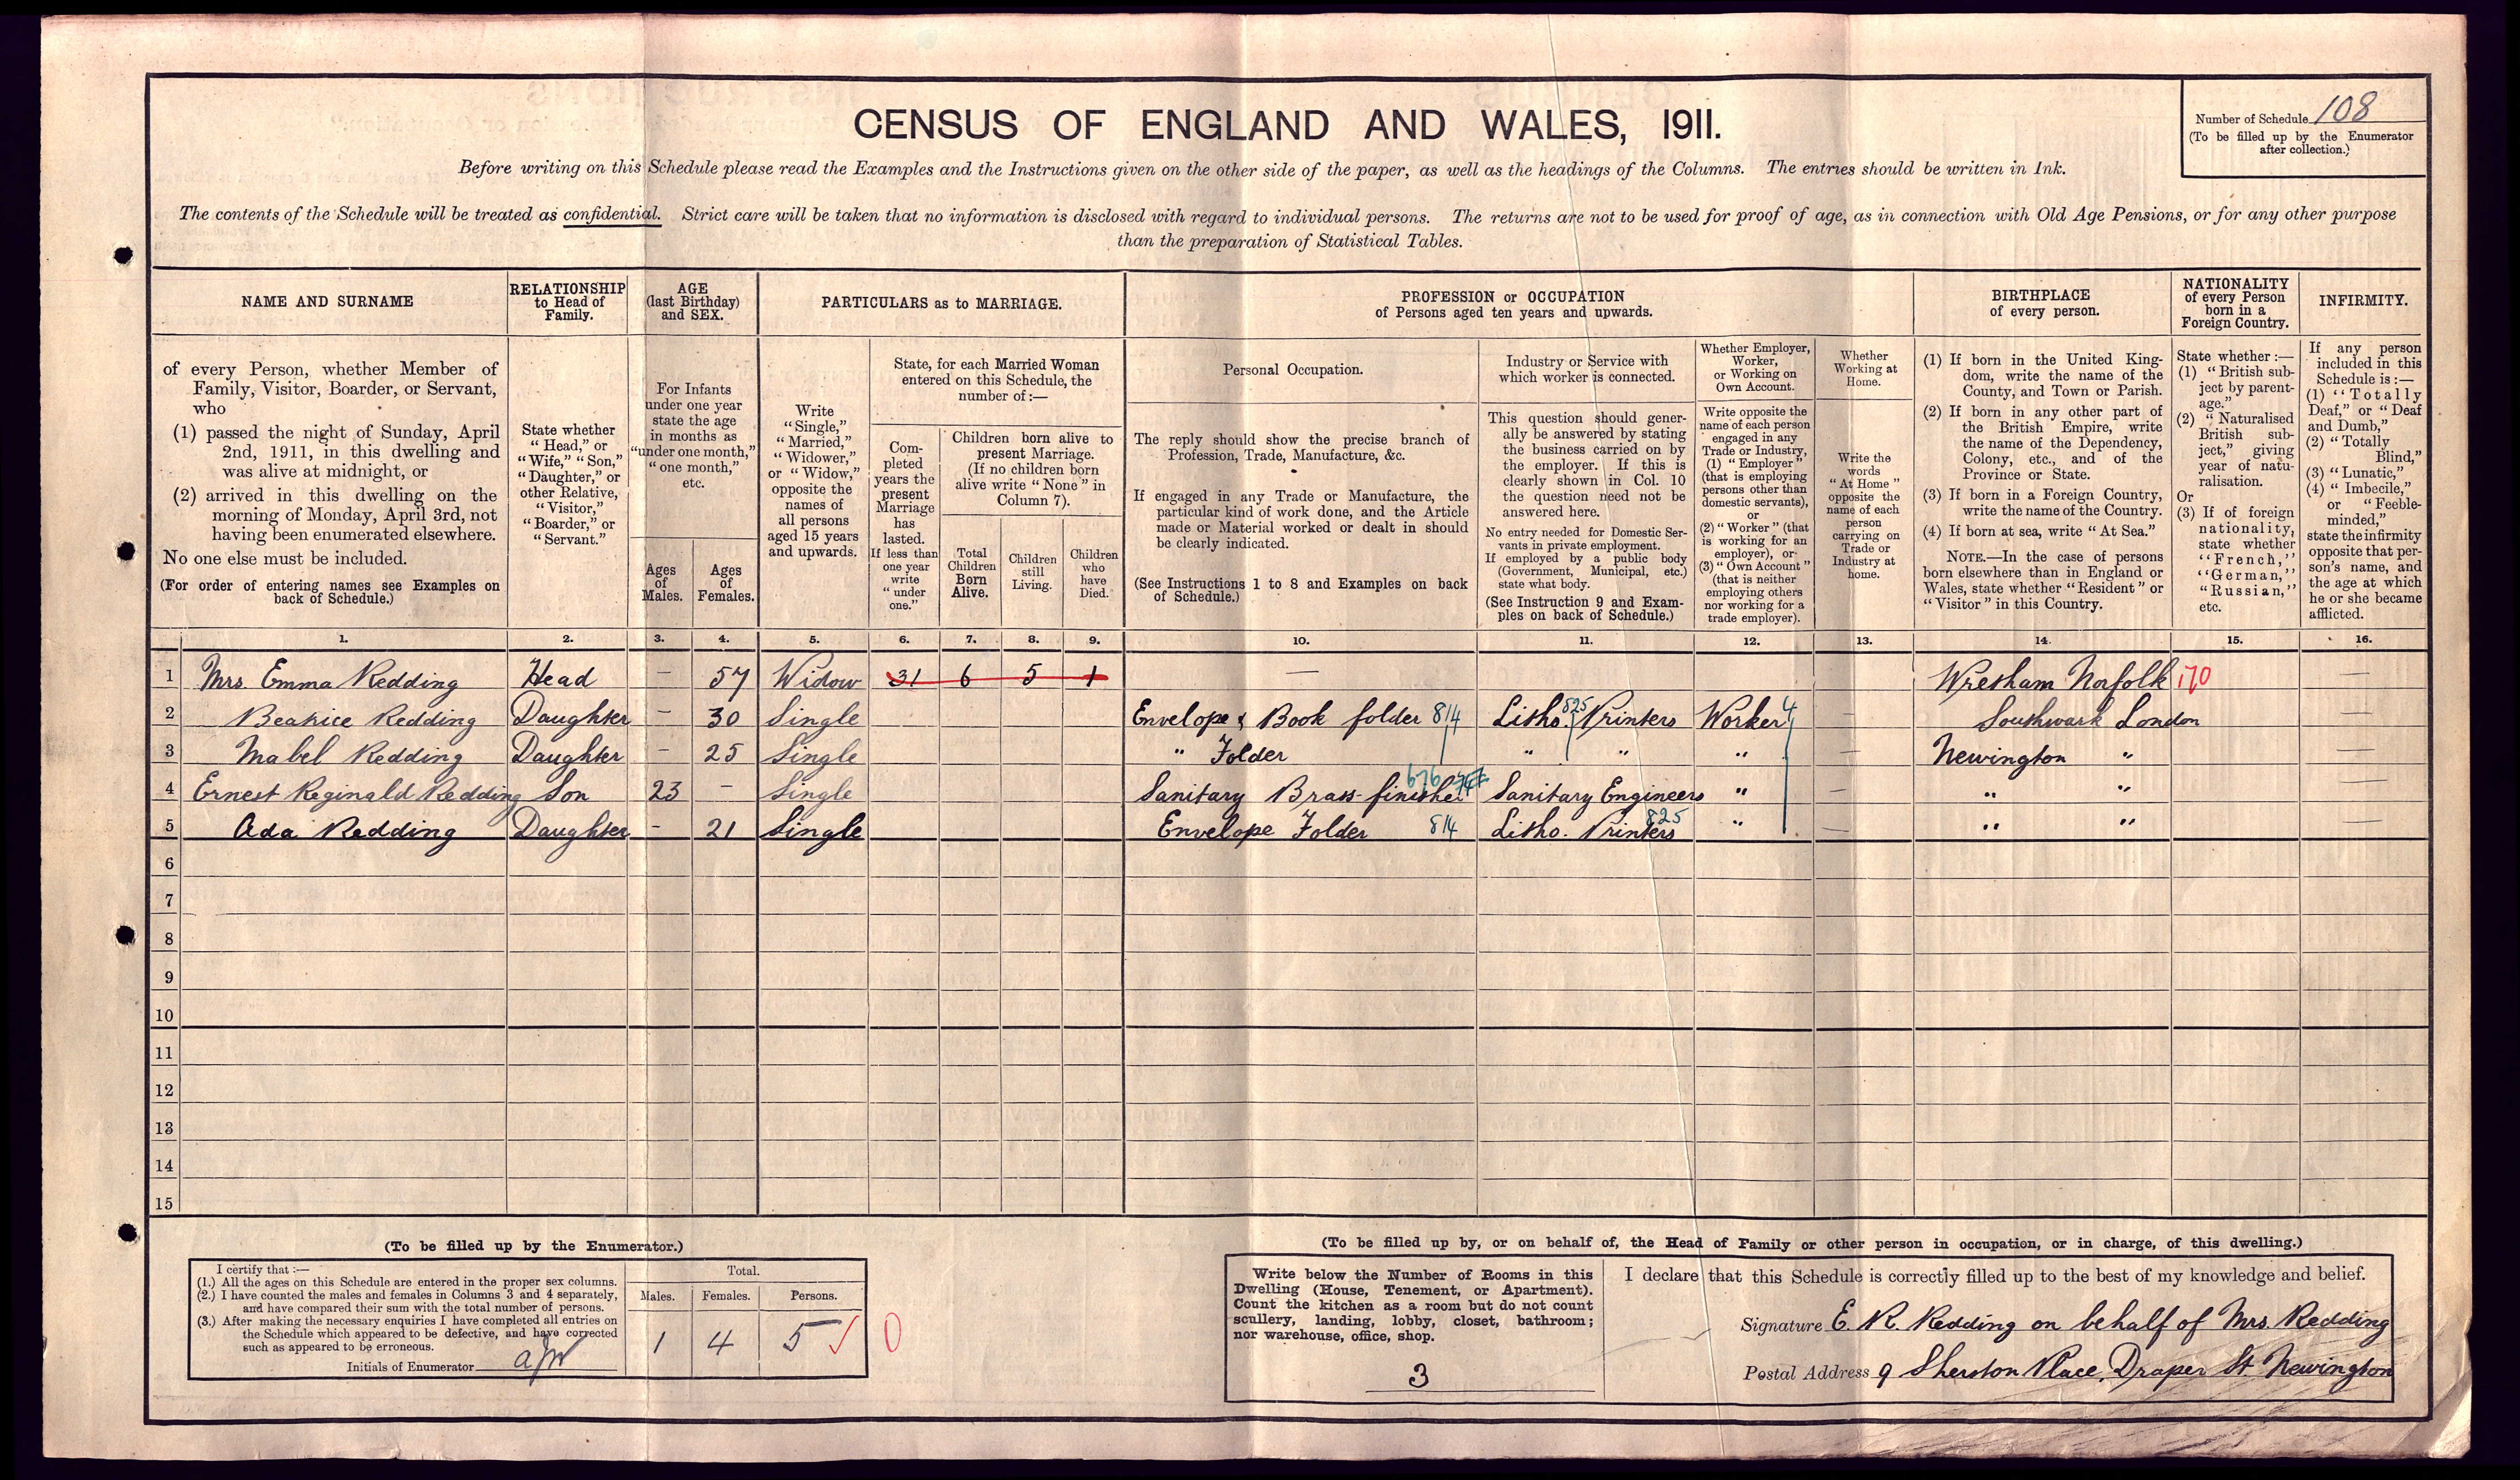 CENSUS OF ENGLAND AND WALES, 1911.
Number of Schedule 108
(To be filled up by the Enumerator
after collection.)
Before writing on this Schedule please read the Examples and the Instructions given on the other side of the paper, as well as the headings of the Columns. The entries should be written in Ink.
The contents of the Schedule will be treated as confidential. Strict care will be taken that no information is disclosed with regard to individual persons. The returns are not to be used for proof of age, as in connection with Old Age Pensions, or for any other purpose
than the preparation of Statistical Tables.
NAME AND SURNAME
of every Person, whether Member of
Family, Visitor, Boarder, or Servant,
who
(1) passed the night of Sunday, April
2nd, 1911, in this dwelling and
was alive at midnight, or
(2) arrived in this dwelling on the
morning of Monday, April 3rd, not
having been enumerated elsewhere.
No one else must be included.
(For order of entering names see Examples on
back of Schedule.)
RELATIONSHIP
to Head of
Family.
State whether
"Head," or
"Wife," "Son,"
"Daughter," or
other Relative,
"Visitor,"
"Boarder," or
"Servant."
AGE
(last Birthday)
and SEX.
For Infants
under one year
state the age
in months as
"under one month,"
"one month,"
etc.
Ages
of
Males.
Ages
of
Females.
PARTICULARS as to MARRIAGE.
Write
"Single,"
"Married,"
"Widower,"
or "Widow,"
opposite the
names of
all persons
aged 15 years
and upwards.
State, for each Married Woman
entered on this Schedule, the
number of:—
Com-
pleted
years the
present
Marriage
has
lasted.
If less than
one year
write
"under
one."
Children born alive to
present Marriage.
(If no children born
alive write "None" in
Column 7).
Total
Children
Born
Alive.
Children
still
Living.
Children
who
have
Died.
PROFESSION or OCCUPATION
of Persons aged ten years and upwards.
Personal Occupation.
The reply should show the precise branch of
Profession, Trade, Manufacture, &c.
If engaged in any Trade or Manufacture, the
particular kind of work done, and the Article
made or Material worked or dealt in should
be clearly indicated.
(See Instructions 1 to 8 and Examples on back
of Schedule.)
Industry or Service with
which worker is connected.
This question should gener-
ally be answered by stating
the business carried on by
the employer. If this is
clearly shown in Col. 10
the question need not be
answered here.
No entry needed for Domestic Ser-
vants in private employment.
If employed by a public body
(Government, Municipal, etc.)
state what body.
(See Instruction 9 and Exam-
ples on back of Schedule.)
Whether Employer,
Worker,
or Working on
Own Account.
Write opposite the
name of each person
engaged in any
Trade or Industry,
(1) "Employer"
(that is employing
persons other than
domestic servants),
or
(2) "Worker" (that
is working for an
employer), or
(3) "Own Account"
(that is neither
employing others
nor working for a
trade employer).
Whether
Working at
Home.
Write the
words
"At Home"
opposite the
name of each
person
carrying on
Trade or
Industry at
home.
BIRTHPLACE
of every person.
(1) If born in the United King-
dom, write the name of the
County, and Town or Parish.
(2) If born in any other part of
the British Empire, write
the name of the Dependency,
Colony, etc., and of the
Province or State.
(3) If born in a Foreign Country,
write the name of the Country.
(4) If born at sea, write "At Sea."
NOTE.—In the case of persons
born elsewhere than in England or
Wales, state whether "Resident" or
"Visitor" in this Country.
NATIONALITY
of every Person
born in a
Foreign Country.
State whether:—
(1) "British sub-
ject by parent-
age."
(2) "Naturalised
British sub-
ject," giving
year of natu-
ralisation.
Or
(3) If of foreign
nationality,
state whether
"French,"
"German,"
"Russian,"
etc.
INFIRMITY.
If any person
included in this
Schedule is:—
(1) "Totally
Deaf," or "Deaf
and Dumb,"
(2) "Totally
Blind,"
(3) "Lunatic,"
(4) "Imbecile,"
or "Feeble-
minded,"
state the infirmity
opposite that per-
son's name, and
the age at which
he or she became
afflicted.
1. 2. 3. 4. 5. 6. 7. 8. 9. 10. 11. 12. 13. 14. 15. 16.
1 Mrs. Emma Redding Head — 57 Widow 31 6 5 1 — Wretham Norfolk 170 —
2 Beatrice Redding Daughter — 30 Single Envelope & Book folder 814 Litho. 825 Printers Worker 4 Southwark London
3 Mabel Redding Daughter — 25 Single " Folder " " " — Newington " —
4 Ernest Reginald Redding Son 23 — Single Sanitary Brass-finisher 676 Sanitary Engineers " — " " —
5 Ada Redding Daughter — 21 Single Envelope Folder 814 Litho. Printers 825 " — " " —
6
7
8
9
10
11
12
13
14
15
(To be filled up by the Enumerator.)
I certify that:—
(1.) All the ages on this Schedule are entered in the proper sex columns.
(2.) I have counted the males and females in Columns 3 and 4 separately,
and have compared their sum with the total number of persons.
(3.) After making the necessary enquiries I have completed all entries on
the Schedule which appeared to be defective, and have corrected
such as appeared to be erroneous.
Initials of Enumerator AJW
Total.
Males. Females. Persons.
1 4 5 0
(To be filled up by, or on behalf of, the Head of Family or other person in occupation, or in charge, of this dwelling.)
Write below the Number of Rooms in this
Dwelling (House, Tenement, or Apartment).
Count the kitchen as a room but do not count
scullery, landing, lobby, closet, bathroom;
nor warehouse, office, shop.
3
I declare that this Schedule is correctly filled up to the best of my knowledge and belief.
Signature E. R. Redding on behalf of Mrs. Redding
Postal Address 9 Sherston Place, Draper St. Newington